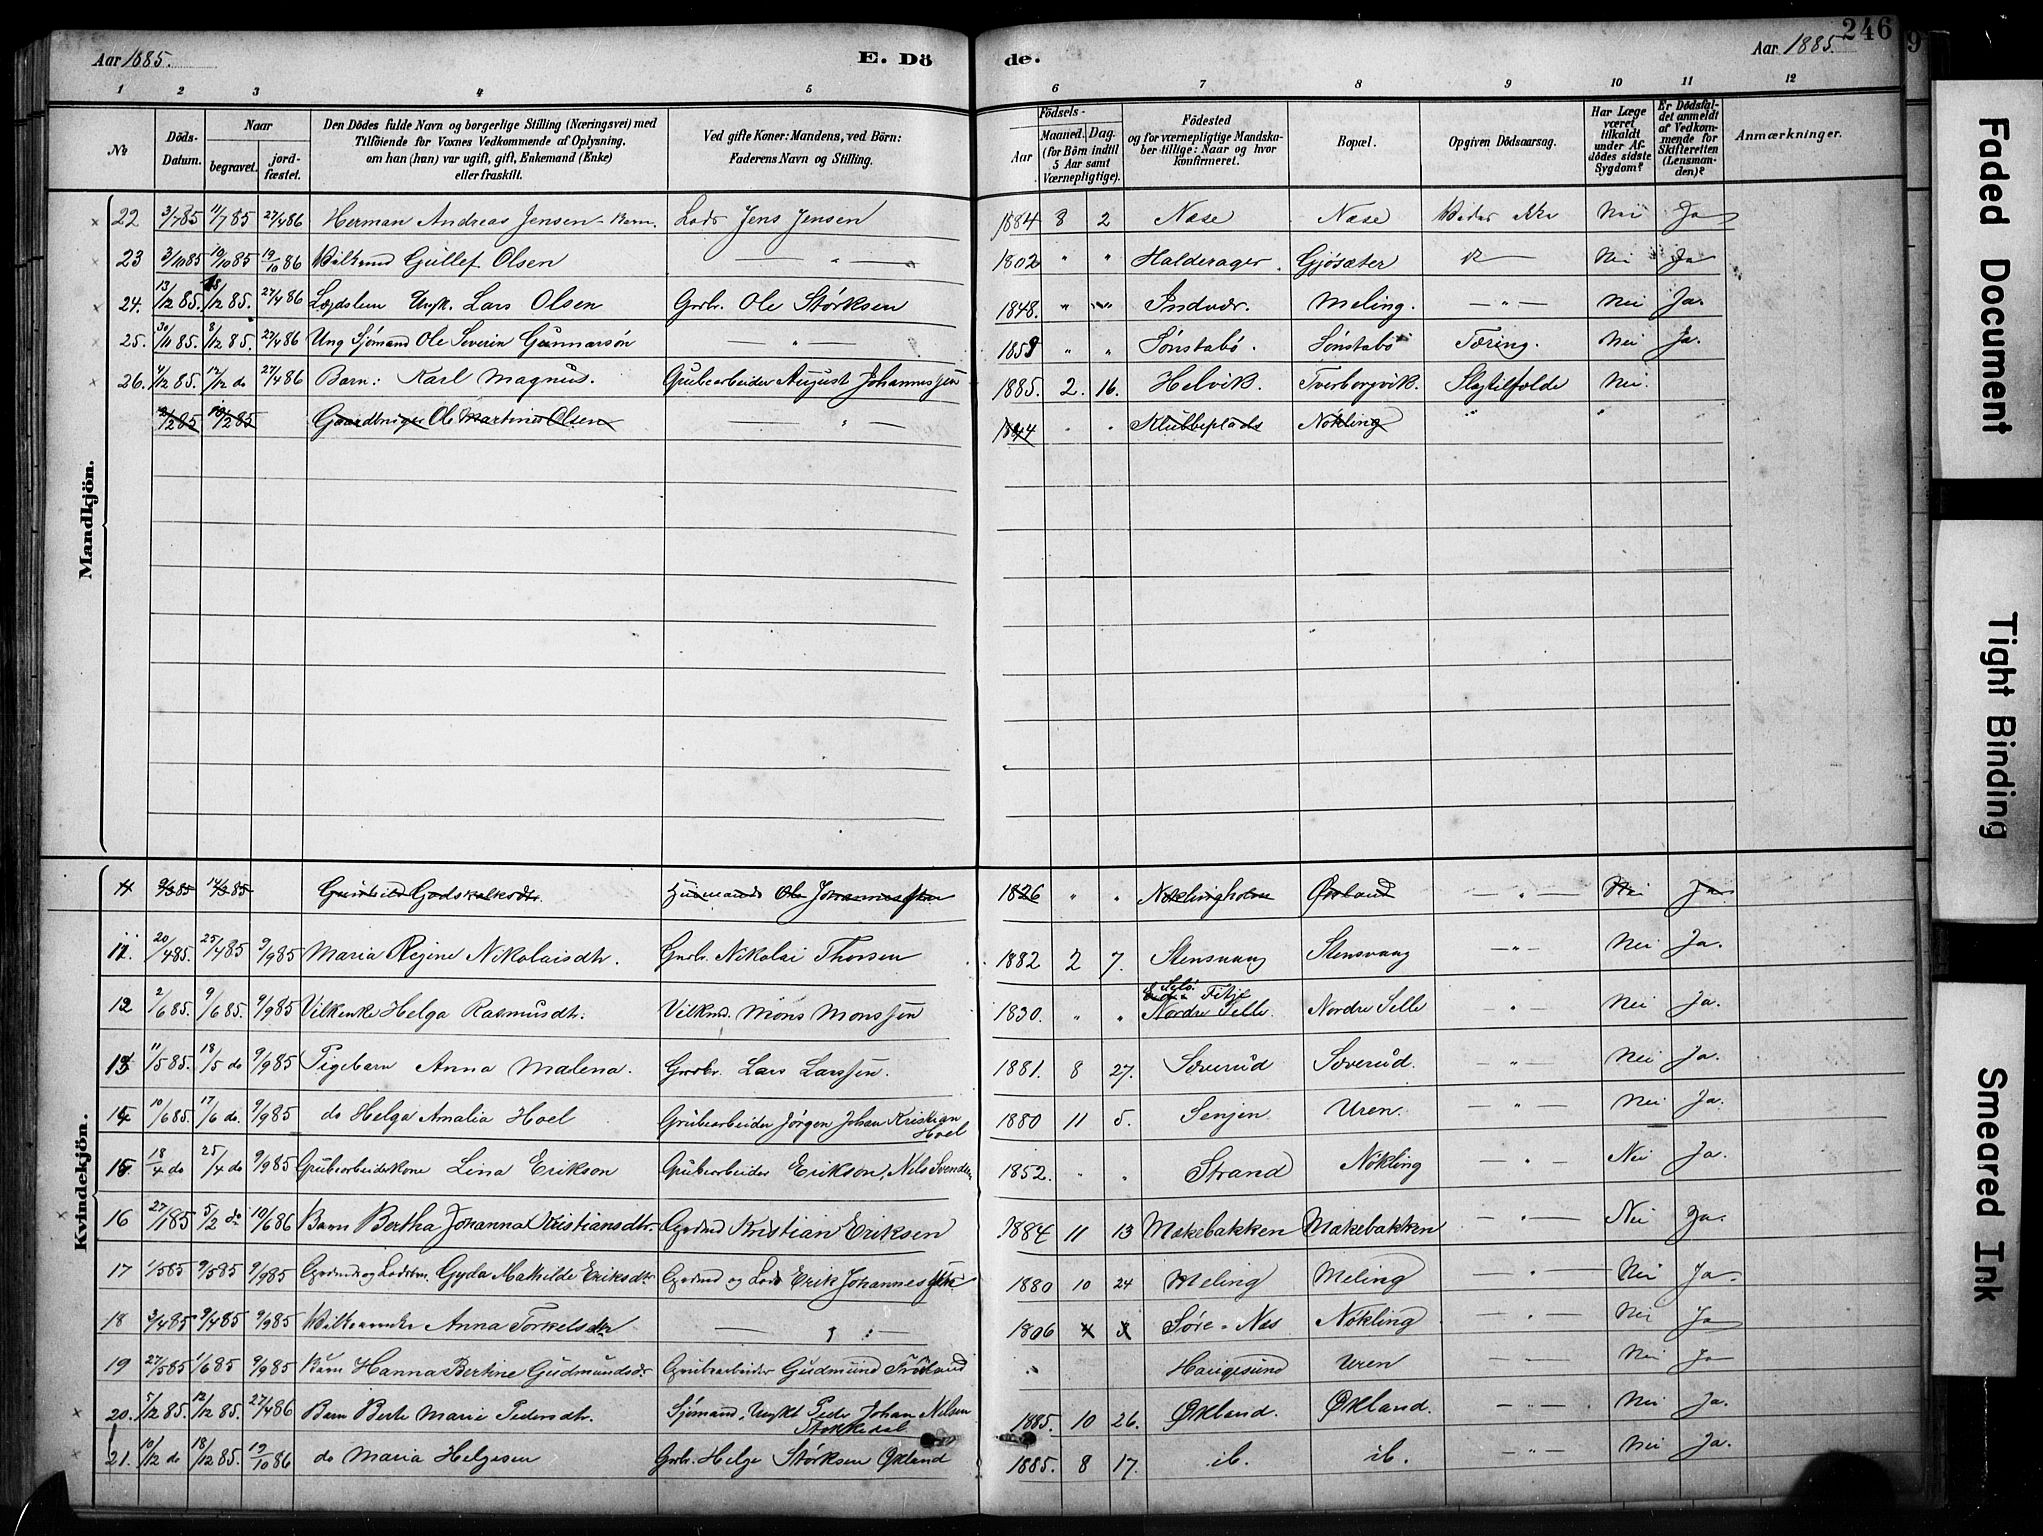 246
9
Aar 1885. E. Dö de. Aar 1885.
1 2 3 4 5 6 7 8 9 10 11 12
No Döds-Datum. Naar begravet. jord-fæstet. Den Dödes fulde Navn og borgerlige Stilling (Næringsvei) med Tilföiende for Voxnes Vedkommende af Oplysning, om han (hun) var ugift, gift, Enkemand (Enke) eller fraskilt. Ved gifte Koner: Mandens, ved Börn: Faderens Navn og Stilling. Födsels- Aar Maaned. Dag. (for Börn indtil 5 Aar samt Værnepligtige). Födested og for værnepligtige Mandskaber tillige: Naar og hvor konfirmeret. Bopæl. Opgiven Dödsaarsag. Har Læge været tilkaldt under Afdödes sidste Sygdom? Er Dödsfaldet anmeldt af Vedkommende for Skifteretten (Lensmanden)? Anmærkninger.
Mandkjön.
22 3/7 85 11/7 85 27/4 86 Herman Andreas Jensen - Barn. Lods Jens Jensen 1884 8 2 Næse Næse Vides ikke Nei Ja
23 3/10 85 10/10 85 19/10 86 Vilkmd Gullef Olsen — " — 1802 " " Halderager. Gjøsæter Nei Ja
24. 13/12 85. 18/12 85. 27/4 86 Lægdslem Ungk. Lars Olsen Grbr. Ole Størksen 1848. " " Indvær. Meling. — " — Nei Ja.
25. 30/11 85. 8/12 85. 27/4 86 Ung Sjømand Ole Severin Gunnarsøn — " — 1859 " " Sønstabø. Sønstabø Tæring. Nei Ja.
26. 4/12 85. 12/12 do 27/4 86 Barn: Karl Magnus. Grubearbeider August Johannessen 1885. 2. 16. Helvik. Tverborgvik. Slagtilfælde Nei.
12/2 85 19/2 85 Gaardbruger Ole Martinus Olsen — " — 1844 " " Klubbeplads Nökling " "
Kvindekjön.
11 9/3 85 14/3 85 Gunhild Godskalksdtr. Huusmand Ole Johannessen 1826 " " Nøklingholm Øxland — " — Nei Ja
11. 20/4 85. 25/4 85 9/9 85 Maria Regine Nikolaisdtr. Grbr. Nikolai Thorsen 1882 2 7. Stensvaag Stensvaag — " — Nei Ja.
12 2/6 85. 9/6 85. 9/9 85 Vilkenke Helga Rasmusdtr. Vilkmd. Mons Monssen 1830. " " Selø Fitje Nordre Selle. Nordre Selle — " — Nei Ja.
13 11/5 85. 18/5 do 9/9 85 Pigebarn Anna Malena. Grdbr. Lars Larssen. 1881. 8 27. Sæverud Sæverud. — " — Nei Ja.
14 10/6 85. 17/6 do. 9/9 85 do Helga Amalia Hoel Grubearbeider Jørgen Johan Kristian Hoel 1880 11 5. Senjen Uren. — " — Nei Ja.
15 18/4 do 25/4 do 9/9 85 Grubearbeiderkone Lina Erikson Grubearbeider Erikson, Nels Svenden 1852. " " Strand Nökling — " — Nei Ja.
16 27/1 85 5/2 do 10/6 86 Barn Bertha Johanna Kristiansdtr. Grdmd Kristian Eriksen 1884 11 13 Mækebakken Mækebakken — " — Nei Ja.
17 1/5 85 9/5 85 9/9 85 Grdmds og Lodsbn. Gyda Mathilde Eriksdtr Grdmd og Lods Erik Johannessen 1880 10 24 Meling Meling — " — Nei Ja.
18 3/4 85 9/4 85 9/9 85 Anna Torkelsdtr — " — 1806 Søre-Næs Nökling — " — Nei Ja
19 27/5 85 1/6 85 9/9 85 Barn Hanna Bertine Gudmundsdr. Grubearbeider Gudmund Fröland Haugesund Uren — " — Nei Ja
20. 5/12 85. 12/12 85. 27/4 86 Barn Berte Marie Pedersdtr. Sjømand, Ungkl Peder Johan Nilsen Stokkedal 1885. 10 26. Økland. Økland. — " — Nei Ja.
21. 10/12 do 18/12 85. 19/10 86 do Maria Helgesen Grbr. Helge Størksen Økland 1885. 8 17. ib. ib. — " — Nei Ja.
Faded Document
Tight Binding
Smeared Ink